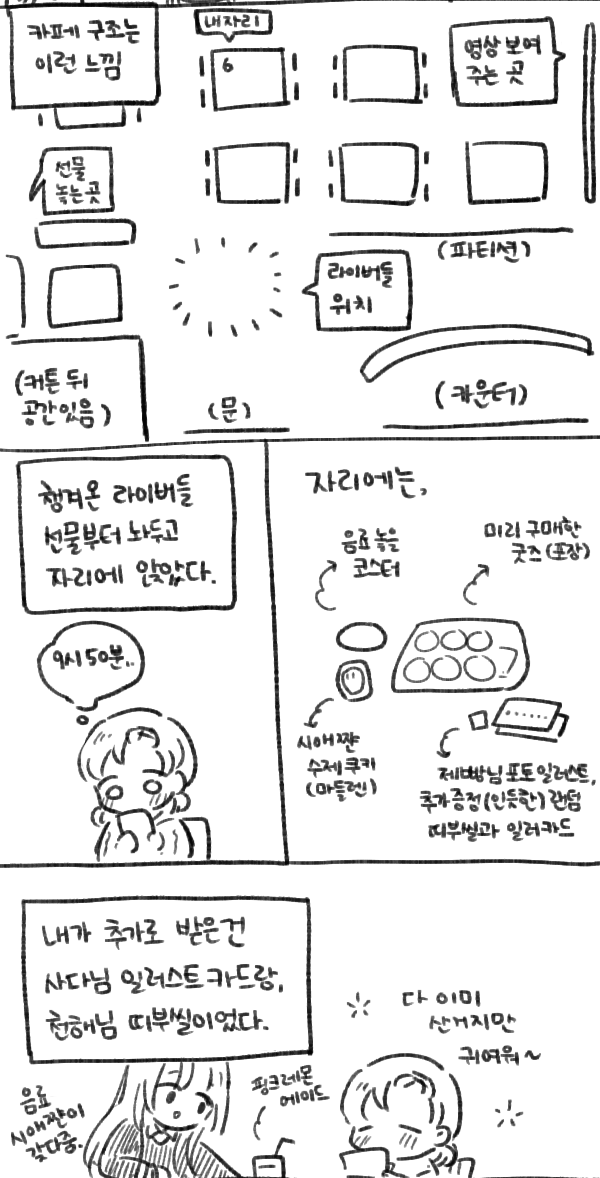 카페 구조는
이런 느낌
내자리
6
영상 보여
주는 곳
선물
놓는 곳
(파티션)
라이버들
위치
(커튼 뒤
공간있음)
(문)
(카운터)
챙겨온 라이버들
선물부터 놔두고
자리에 앉았다.
9시 50분..
자리에는,
음료 놓을
코스터
미리 구매한
굿즈 (포장)
시애쨩
수제쿠키
(마들렌)
제빵님 포토일러스트,
추가증정(인듯한) 랜덤
띠부씰과 일러카드
내가 추가로 받은건
사다님 일러스트카드랑,
천해님 띠부씰이었다.
다 이미
산거지만
귀여워~
음료
시애쨩이
갖다줌.
핑크레몬
에이드